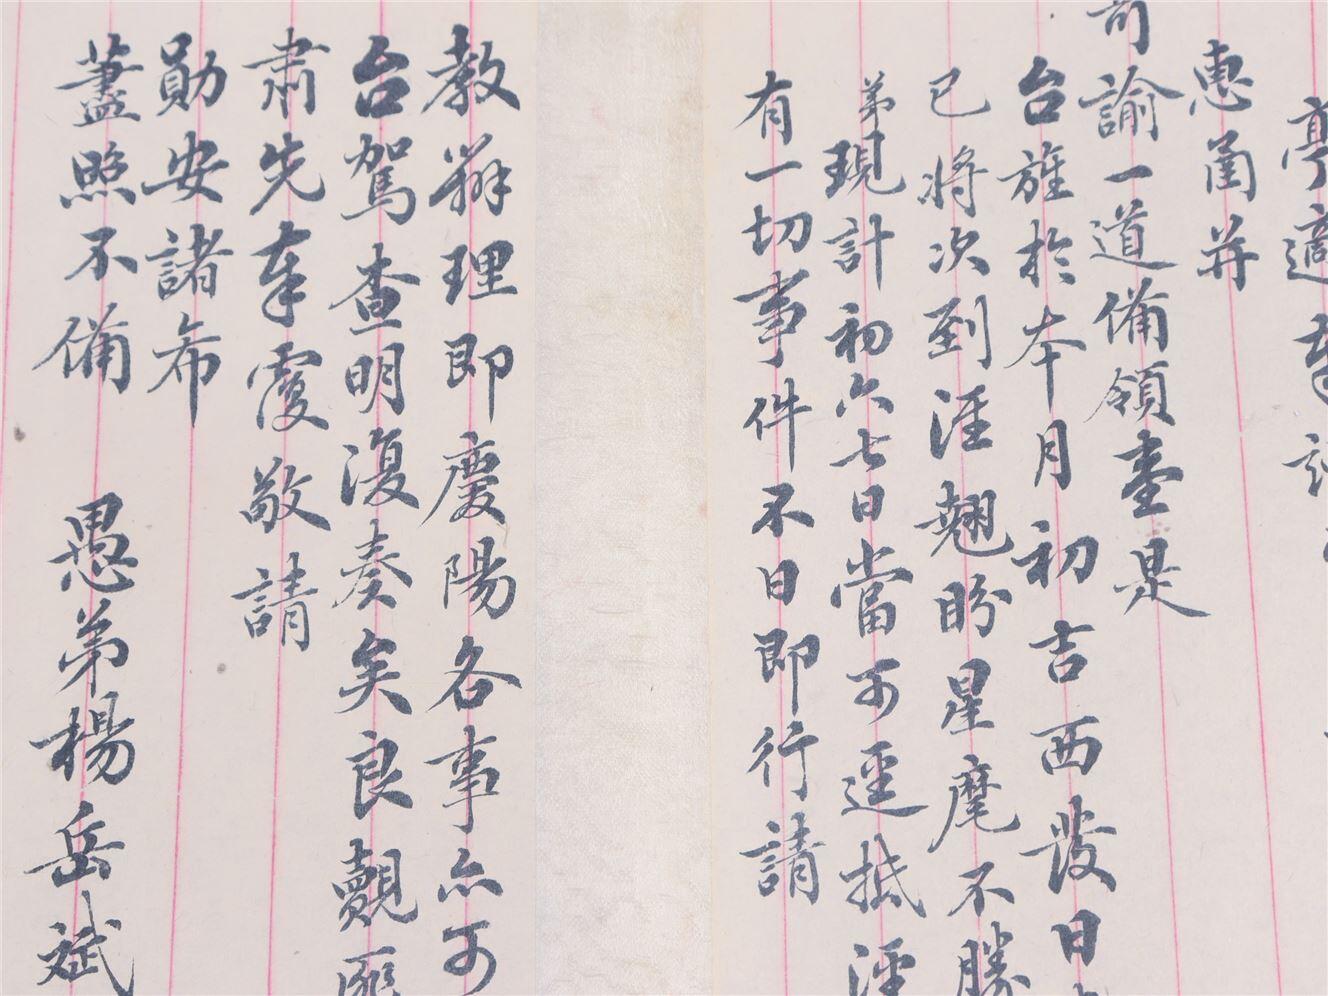 亭適奉
惠函并
諭一道備領壹是
台旌於本月初吉西發日
已將次到涇翹盼星麾不勝
弟現計初六七日當可逕抵涇
有一切事件不日即行請
教辦理即慶陽各事亦可
台駕查明復奏矣良覿匪
肅先奉覆敬請
勛安諸希
藎照不備 愚弟楊岳斌